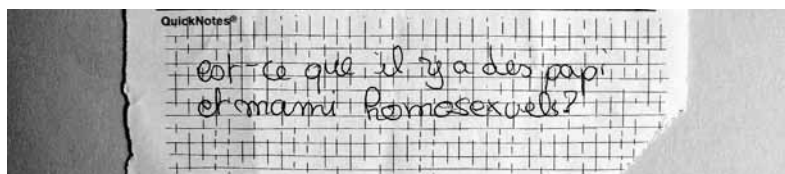 QuickNotes®
est-ce que il y a des papi
et mami homosexuels?